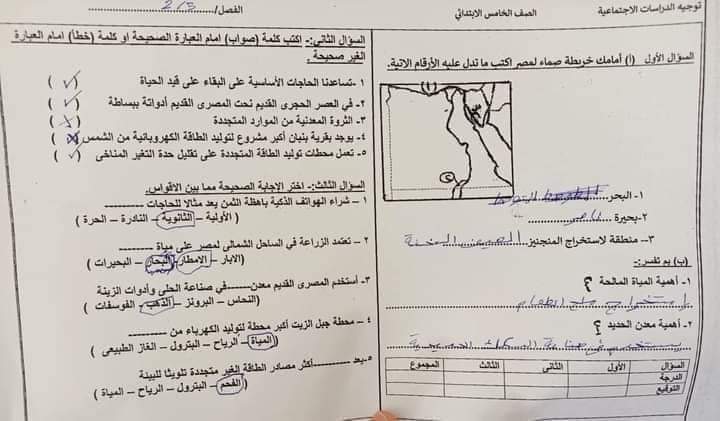 توجيه الدراسات الاجتماعية
الصف الخامس الابتدائي
الفصل/ 2/5
السؤال الأول (أ) أمامك خريطة صماء لمصر اكتب ما تدل عليه الأرقام الاتية.
١
٢
١- البحر المتوسط
٢- بحيرة ناصر
٣- منطقة لاستخراج المنجنيز
(ب) بم تفسر:-
١- أهمية المياة المالحة ؟
استخراج ملح الطعام
٢- أهمية معدن الحديد ؟
السؤال الأول الثانى الثالث المجموع
الدرجة
التوقيع
السؤال الثانى:- اكتب كلمة (صواب) امام العبارة الصحيحة او كلمة (خطأ) امام العبارة
الغير صحيحة .
١ -تساعدنا الحاجات الأساسية على البقاء على قيد الحياة ( ✓ )
٢- في العصر الحجرى القديم نحت المصرى القديم أدواتة ببساطة ( ✓ )
٣- الثروة المعدنية من الموارد المتجددة ( × )
٤- يوجد بقرية بنبان أكبر مشروع لتوليد الطاقة الكهروبائية من الشمس ( )
٥- تعمل محطات توليد الطاقة المتجددة على تقليل حدة التغير المناخى ( ✓ )
السؤال الثالث:- اختر الإجابة الصحيحة مما بين الاقواس.
١ – شراء الهواتف الذكية باهظة الثمن يعد مثالا للحاجات ---------
( الأولية – الثانوية – النادرة – الحرة )
٢ – تعتمد الزراعة في الساحل الشمالى لمصر على مياة ---------
(الابار – الامطار – البحار – البحيرات )
٣- أستخدم المصرى القديم معدن-------في صناعة الحلى وأدوات الزينة
(النحاس – البرونز – الذهب – الفوسفات )
٤ – محطة جبل الزيت أكبر محطة لتوليد الكهرباء من ----------
(المياة – الرياح – البترول – الغاز الطبيعى )
٥- يعد ---------أكثر مصادر الطاقة الغير متجددة تلويثا للبيئة
( الفحم – البترول – الرياح – المياة )